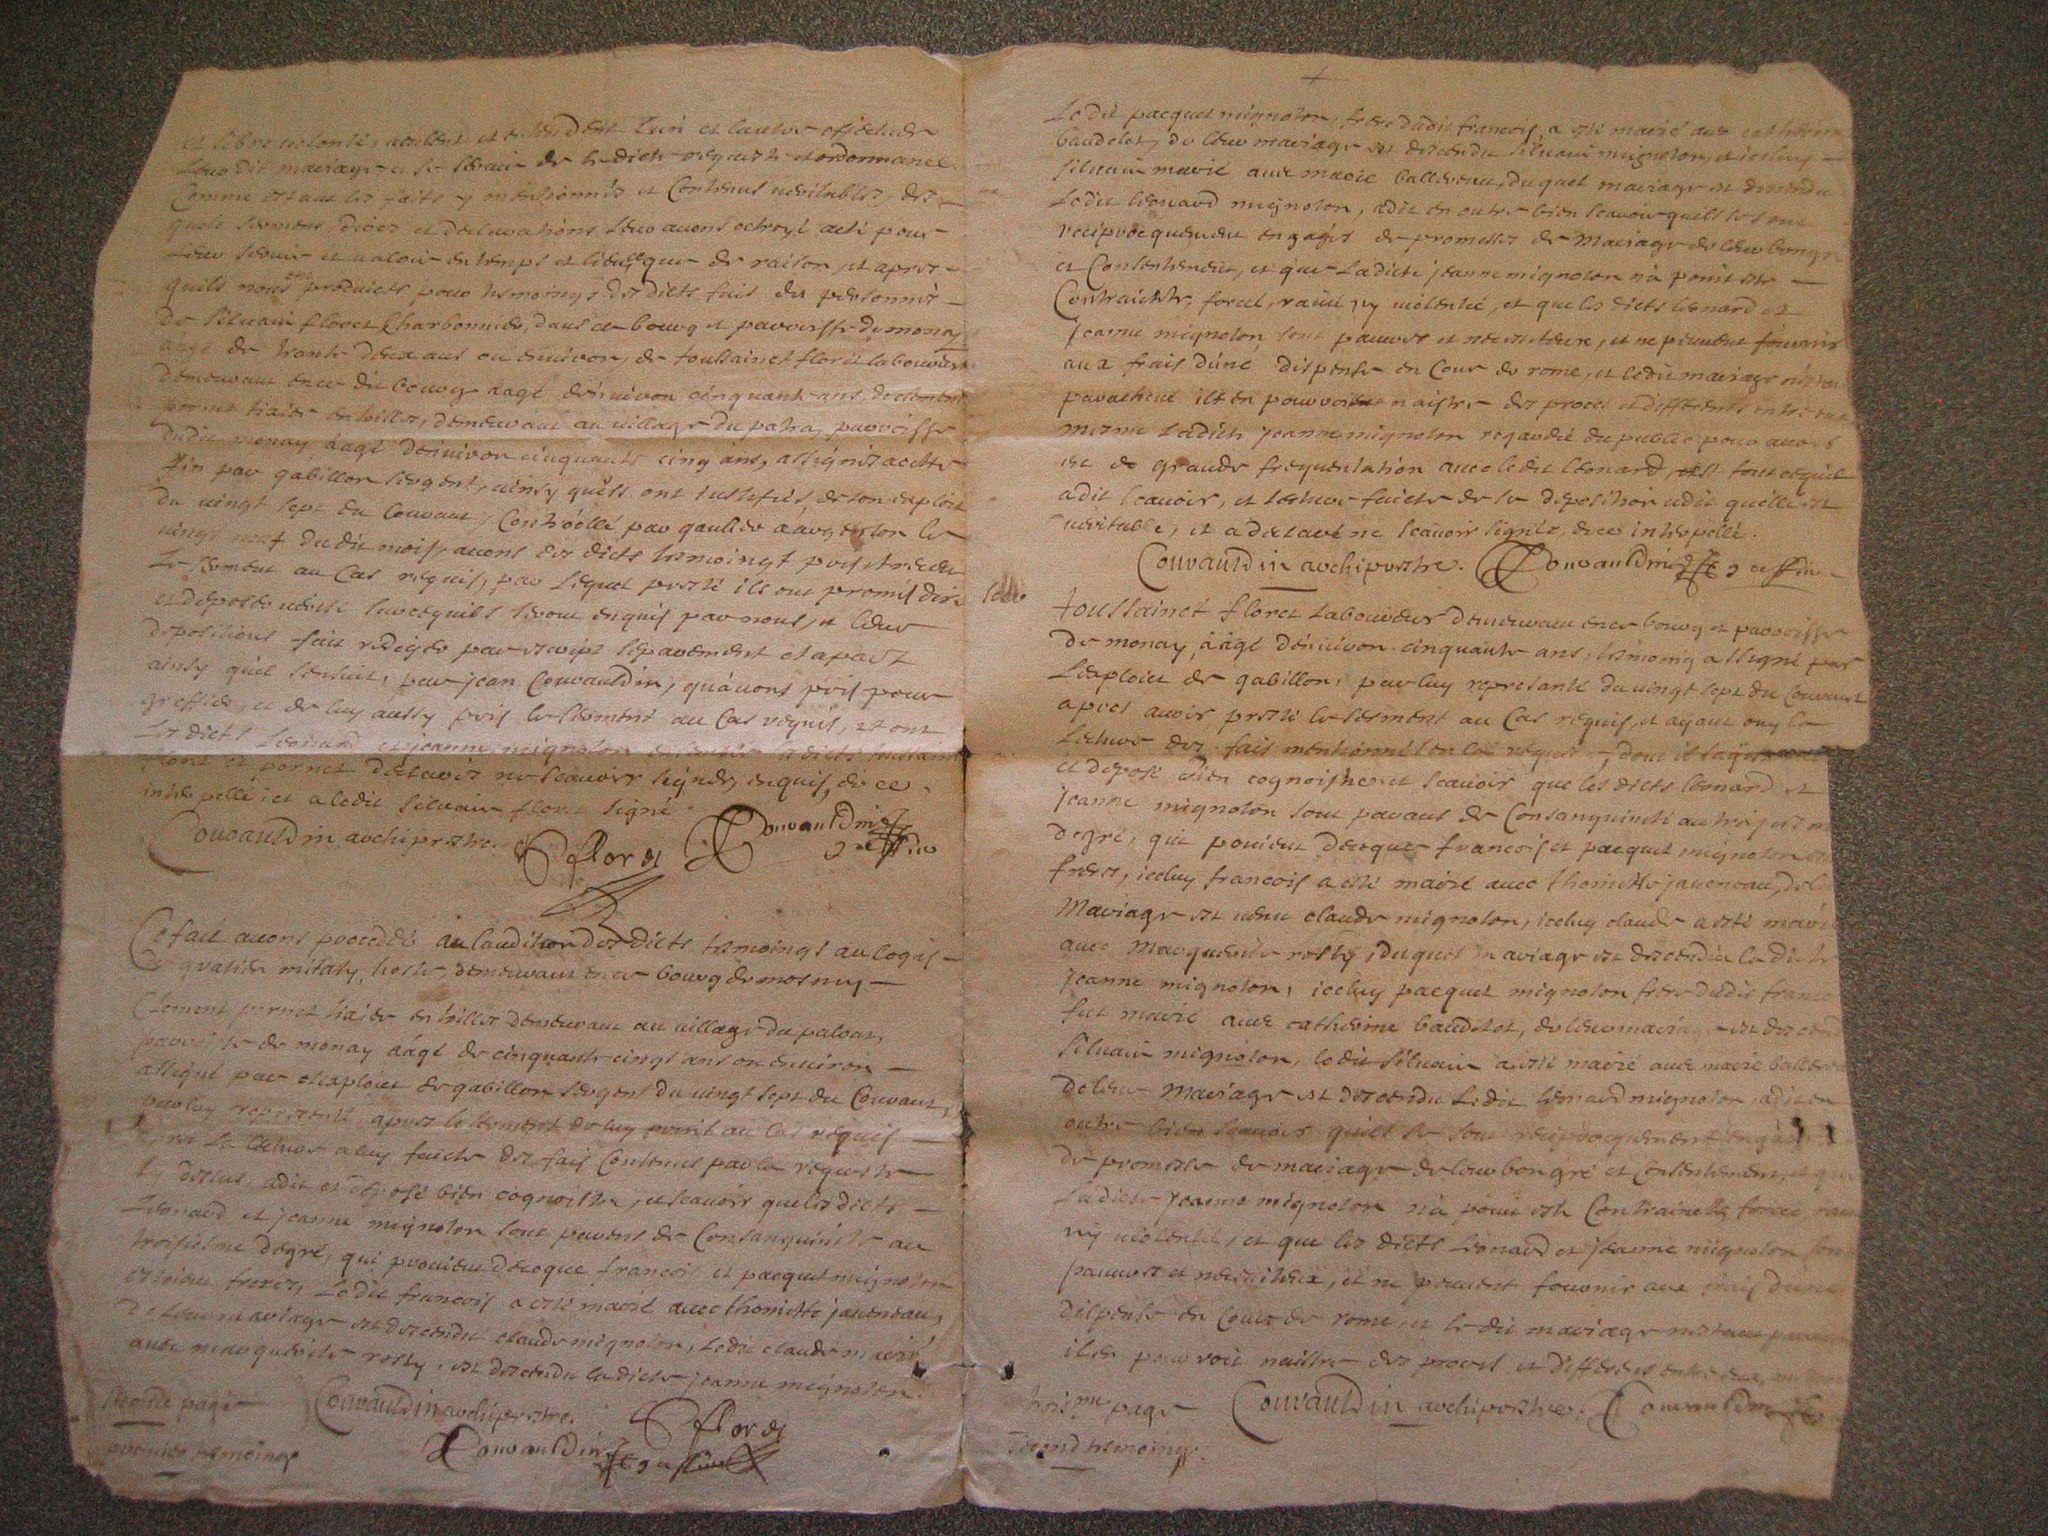 et libre volonté, veullent et entendent l'un et l'autre effectuer
leur dit mariage et se servir de la dicte requeste et ordonnance
Comme estant les faits y mentionnés et Contenus veritables, des
quels serment, dires et declarations leur avons octroyé acte pour
leur servir et valoir en temps et lieu, ce que de raison, et apres
quils nous ont produicts pour tesmoings des dicts fais des personnes
de silvain floret Charbonnier, dans ce bourg et parroisse de monay
aagé de trante deux ans ou environ, de toussainct floret laboureur
demeurant en ce dit bourg aagé d'environ cinquante ans, de clement
pornet tixier en toilles, demeurant au village du , parroisse
dudit monay, aagé d'environ cinquante cinq ans, assignés a cette
fin par gabillon sergent, ainsy quils ont justifiés de son exploit
du vingt sept du Courant, Controollé par gaultier a argenton le
vingt neuf dudit mois, avons des dicts tesmoingt pris et receu
le serment au Cas requis, par lequel presté ils ont promis dire
et deposer verité sur ce quils seront enquis par nous, et leur
depositions fait rediger par escript separement et apart
ainsy quil sensuit, par jean Couraudin, qu'avons pris pour
greffier, et de luy aussy pris le serment au Cas requis, et ont
les dicts Leonard et jeanne mignoton lesdicts toussainct
floret et pornet declarés ne scavoir signer, enquis, de ce
interpellé, et a ledit silvain floret signé
Couraudin archiprestre. Sfloret Couraudin greffier
Ce fait avons procedé a laudition des dicts tesmoings au logis
de gratien mitaty, hoste, demeurant en ce bourg de mosnay
Clement pornet tixier en toilles demeurant au village du palour,
parroisse de monay aagé de cinquante cinqt ans ou environ
assigné par exploict de gabillon sergent du vingt sept du Courant,
par luy representé, apres le serment de luy prins au Cas requis
apres la lecture a luy faicte des fais Contenus par la requeste
cy dessus, a dit et deposé bien cognoistre, et scavoir que les dicts
Leonard et jeanne mignoton sont parens de Consanguinité au
troisiesme degré, qui provient de ce que francois et pacquet mignoton
estoient freres, ledit francois a esté marié avec thoinette javeneau,
de leur mariage est descendu claude mignoton, ledit claude marié
avec marguerite rosty, est descendu la dicte jeanne mignoton
seconde page Couraudin archiprestre. Sfloret
premier tesmoing Couraudin greffier
Ledit pacquet mignoton, frere dudit francois, a esté marié avec catherine
baudelet, de leur mariage est descendu silvain mignoton, et iceluy
silvain marié avec marie ballereau, duquel mariage est descendu
ledit leonard mignoton, a dit en outre bien scavoir quils se sont
reciprocquement engagés de promesses de Mariage de leur bongré
et Consentement, et que la dicte jeanne mignoton n'a point esté
Contraincte, forcé, ravie, ny violenté, et que les dicts leonard et
jeanne mignoton sont pauvres et necessiteux, et ne peuvent fournir
aux frais d'une dispense en Cour de rome, et ledit mariage n'estant
parachevé il en pourroit naistre des proces et differents entre eux
mesme la dicte jeanne mignoton regardée du public pour avoir
esté de grande frequentation avec ledit leonard, est tout ce quil
a dit scavoir, et lecture faicte de sa deposition a dit quelle est
veritable, et a declaré ne scavoir signer, de ce interpellé.
Couraudin archiprestre. Couraudin greffier
toussainct floret laboureur demeurant en ce bourg et parroisse
de monay, aagé d'environ cinquante ans, tesmoing assigné par
lexploict de gabillon, par luy representé du vingt sept du Courant
apres avoir presté le serment au Cas requis, et ayant ouy la
lecture des fais mentionnés en la requeste, dont il sagit
et deposé bien cognoistre et scavoir que les dicts leonard et
jeanne mignoton sont parans de Consanguinité au troisiesme
degré, qui provient de ce que francois et pacquet mignoton
freres, iceluy francois a esté marié avec thoinette javeneau, de leur
Mariage est venu claude mignoton, iceluy claude a esté marié
avec Marguerite rosty, duquel mariage est descendu la dicte
jeanne mignoton, iceluy pacquet mignoton frere dudit francois
fut marié avec catherine baudelet, de leur mariage est descendu
silvain mignoton, ledit silvain a esté marié avec marie ballereau
de leur Mariage est descendu ledit leonard mignoton, a dit en
outre bien scavoir quils se sont reciprocquement engagés
de promesse de mariage de leur bongré et Consentement, et que
la dicte jeanne mignoton n'a point esté Contraincte, forcée, ravie
ny violenté, et que les dicts leonard et jeanne mignoton sont
pauvres et necessiteux, et ne peuvent fournir aux frais dune
dispense en Cour de rome, et le dit mariage n'estant
il en pourroit naistre des proces et differens entre eux,
trois.me page Couraudin archiprestre. Couraudin
second tesmoing